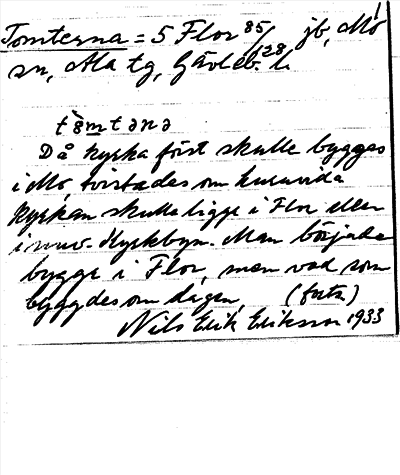 Tomterna = 5 Flor 85/128 jb, Mo
sn, Ala tg, Gävleb. l.
tòmtənə
Då kyrka först skulle byggas
i Mo, tvistades om huruvida
kyrkan skulle ligge i Flor eller
i nuv. Kyrkbyn. Man började
bygge i Flor, men vad som
byggdes om dagen, (forts.)
Nils Erik Eriksson 1933